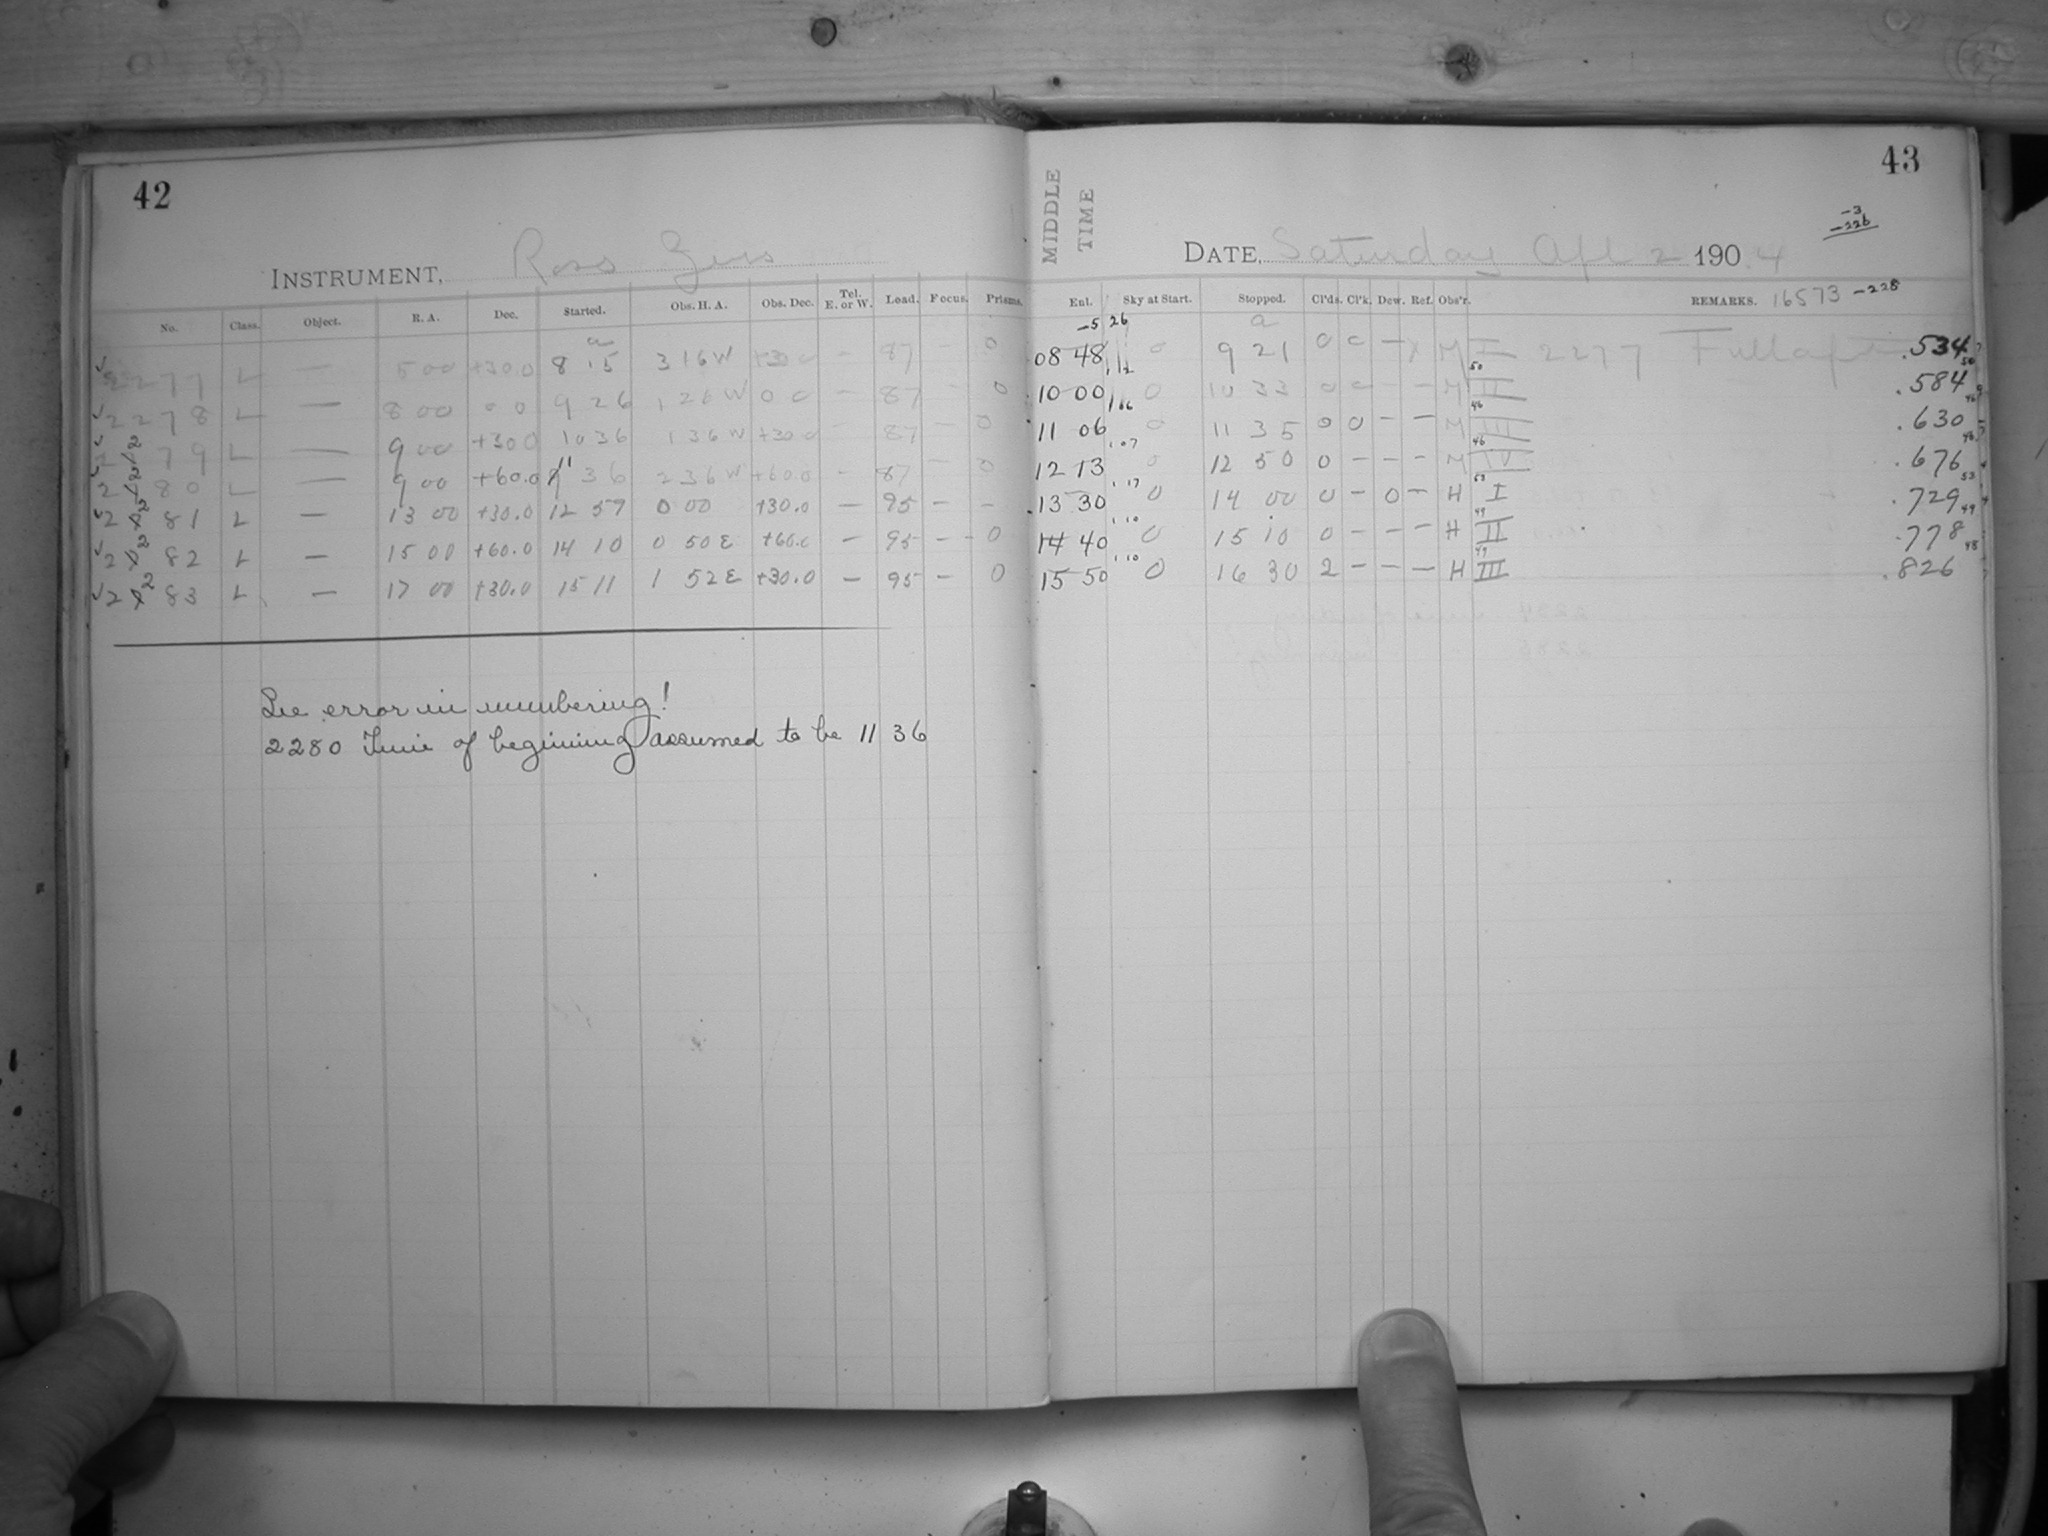 42
INSTRUMENT, Ross Zeiss
No. Class. Object. R. A. Dec. Started. Obs. H. A. Obs. Dec. Tel. E. or W. Load. Focus. Prisms.
a
2277 L — 5 00 +30.0 8 15 3 16 W +30.0 — 87 — 0
2278 L — 8 00 0 0 9 26 1 26 W 0 0 — 87 — 0
2279 L — 9 00 +30.0 10 36 1 36 W +30.0 — 87 — 0
2280 L — 9 00 +60.0 11 36 2 36 W +60.0 — 87 — 0
2281 L — 13 00 +30.0 12 59 0 00 +30.0 — 95 — –
2282 L — 15 00 +60.0 14 10 0 50 E +60.0 — 95 — 0
2283 L — 17 00 +30.0 15 11 1 52 E +30.0 — 95 — 0
See error in numbering!
2280 Time of begining assumed to be 11 36
43
MIDDLE TIME
-3
-226
DATE, Saturday Apl 2 1904
Ent. Sky at Start. Stopped. Cl'ds. Cl'k. Dew. Ref. Obs'r. REMARKS. 16573 -228
-5 26 a
08 48 0 9 21 0 0 — M I 2277 .534
1 12 50 50
10 00 0 10 33 0 0 — M II .584
1 06 46 46
11 06 0 11 35 0 0 — — M III .630
1 07 46 46
12 13 0 12 50 0 — — — M IV .676
1 17 53 53
13 30 0 14 00 0 — 0 — H I .729
1 10 49 49
14 40 0 15 10 0 — — — H II .778
1 10 49 48
15 50 0 16 30 2 — — — H III .826